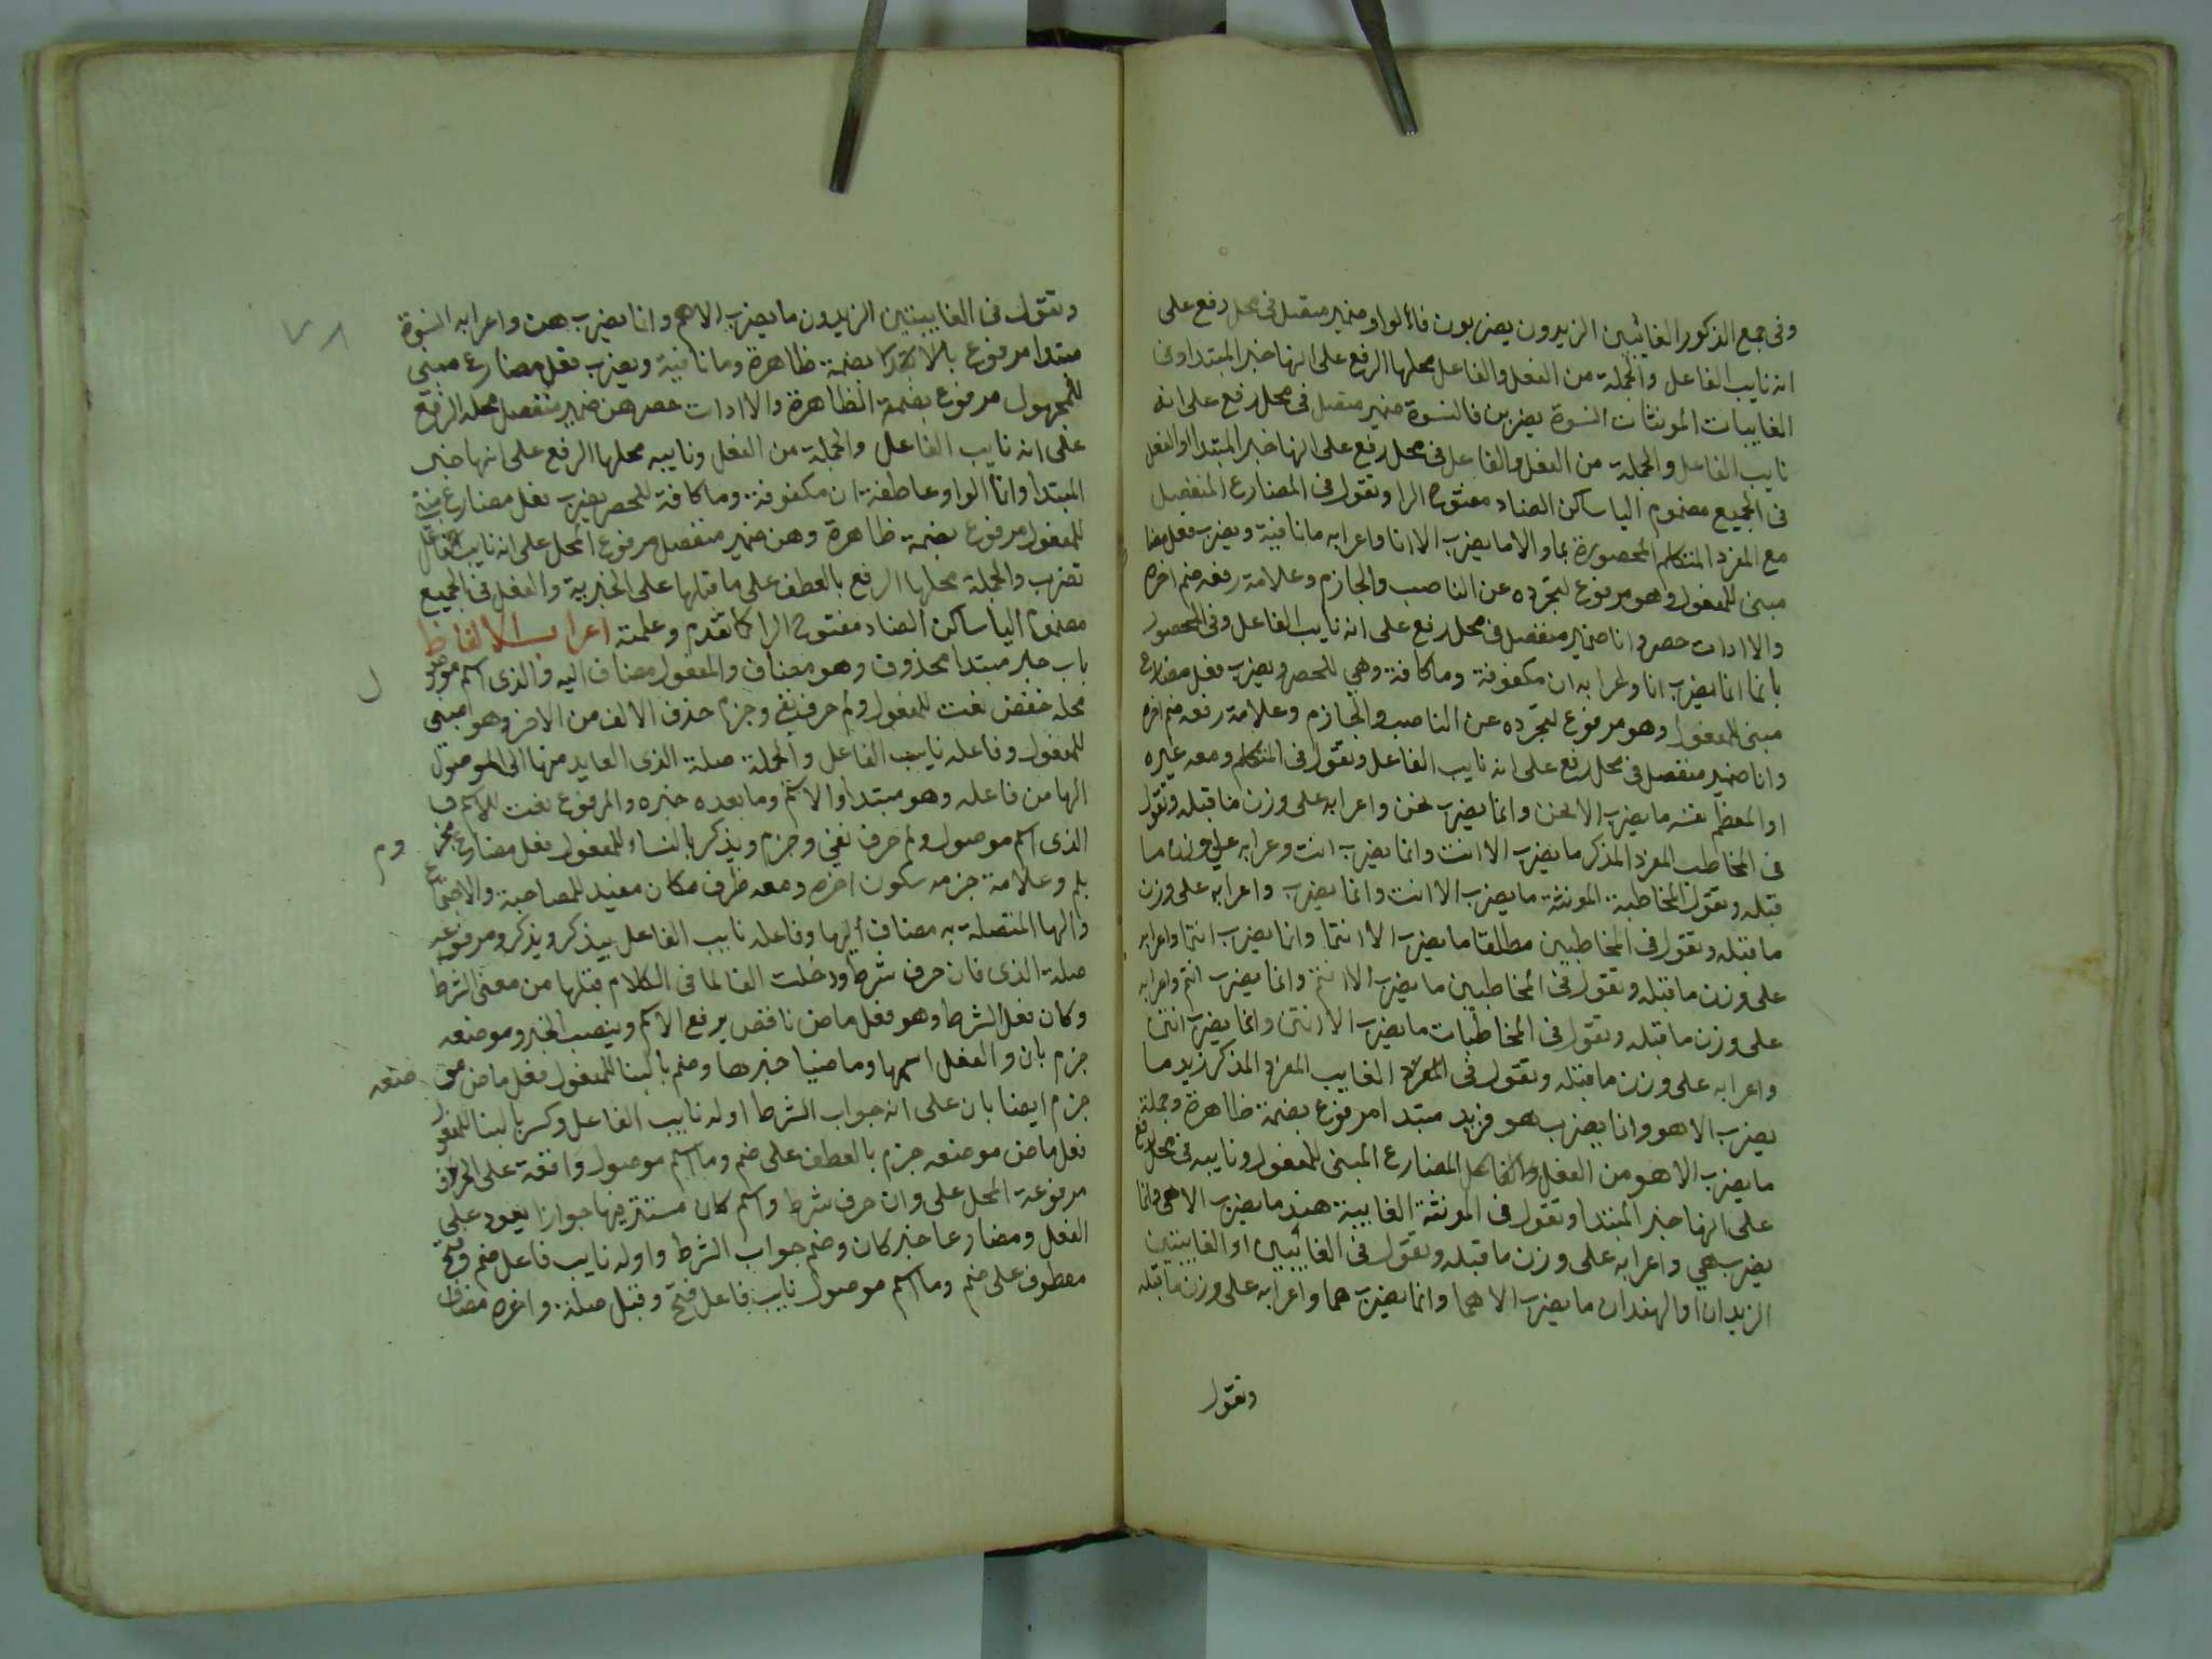 وفى جمع الذكور الغائبين الزيدون يضربون فالواو ضمير متصل فى محل رفع على
انه نايب الفاعل والجملة من الفعل والفاعل محلها الرفع على انها خبر المبتدا وفى
الغايبات المونثات النسوة يضربن فالنسوة ضمير متصل فى محل رفع على انه
نايب الفاعل والجملة من الفعل والفاعل فى محل رفع على انها خبر المبتدا والفعل
فى الجميع مضموم اليا ساكن الضاد مفتوح الرا وتقول فى المضارع المنفصل
مع المفرد المتكلم المحصورة بما والا ما يضرب الا انا واعرابه ما نافية ويضرب فعل مضا
مبنى للمفعول وهو مرفوع لتجرده عن الناصب والجازم وعلامة رفعه ضم اخره
والا ادات حصر وانا ضمير منفصل فى محل رفع على انه نايب الفاعل وفى المحصور
بانما انما يضرب انا واعرابه ان مكفوفة وما كافة وهي للحصر ويضرب فعل مضارع
مبنى للمفعول وهو مرفوع لتجرده عن الناصب والجازم وعلامة رفعه ضم اخره
وانا ضمير منفصل فى محل رفع على انه نايب الفاعل وتقول فى المتكلم ومعه غيره
او المعظم نفسه ما يضرب الا نحن وانما يضرب نحن واعرابه على وزن ما قبله وتقول
فى المخاطب المفرد المذكر ما يضرب الا انت وانما يضرب انت وعرابه على وزن ما
قبله وتقول المخاطبة المونثة ما يضرب الا انت وانما يضرب واعرابه على وزن
ما قبله وتقول فى المخاطبين مطلقا ما يضرب الا انتما وانما يضرب انتما واعرابه
على وزن ما قبله وتقول فى المخاطبين ما يضرب الا انتم وانما يضرب انتم واعرابه
على وزن ما قبله وتقول فى المخاطبات ما يضرب الا انتن وانما يضرب انتن
واعرابه على وزن ما قبله وتقول فى المفرد الغايب المفرد المذكر زيد ما
يضرب الا هو وانما يضرب هو فزيد مبتدا مرفوع بضمة ظاهرة وجملة
ما يضرب الا هو من الفعل والفاعل المضارع المبنى للمفعول ونايبه فى محل رفع
على انها خبر المبتدا وتقول فى المونثة الغايبة هند ما يضرب الا هى وانما
يضرب هي واعرابه على وزن ما قبله وتقول فى الغائبين او الغايبتين
الزيدان او الهندان ما يضرب الا هما وانما يضرب هما واعرابه على وزن ما قبله
وتقول
وتقول فى الغايبتين الزيدون ما يضرب الا هم وانما يضرب هن واعرابه النسوة
مبتدا مرفوع بالابتدا بضمة ظاهرة وما نافية ويضرب فعل مضارع مبنى
للمجهول مرفوع بضمة الظاهرة والا ادات حصر هن ضمير منفصل محله الرفع
على انه نايب الفاعل والجملة من الفعل ونايبه محلها الرفع على انها خبر
المبتدا وانما الواو عاطفة ان مكفوفة وما كافة للحصر يضرب فعل مضارع مبنى
للمفعول مرفوع بضمة ظاهرة وهن ضمير منفصل مرفوع المحل على انه نايب الفاعل
تضرب والجملة محلها الرفع بالعطف على ما قبلها على الخبرية والفعل فى الجميع
مضموم اليا ساكن الضاد مفتوح الرا كما تقدم وعلمته اعراب الالفاظ
باب خبر مبتدا محذوف وهو مضاف والمفعول مضاف اليه والذى اسم موصو
ل
محله خفض نعت للمفعول ولم حرف نفى وجزم حذف الالف من الاخر وهو مبنى
للمفعول وفاعله نايب الفاعل والجملة صلة الذى العايد منها الى الموصول
الها من فاعله وهو مبتدا والاسم وما بعده خبره والمرفوع نعت للاسم
الذى اسم موصول ولم حرف نفي وجزم ويذكر بالنساء للمفعول فعل مضارع مجز
وم
بلم وعلامة جزمه سكون اخره ومعه ظرف مكان مفيد للمصاحبة والاجتماع
والها المتصلة به مضاف اليها وفاعله نايب الفاعل بيذكر ويذكر ومرفوعه
صلة الذى فان حرف شرط ودخلت الفا لما فى الكلام قبلها من معنى الشرط
وكان فعل الشرط وهو فعل ماض ناقص يرفع الاسم وينصب الخبر وموضعه
جزم بان والفعل اسمها وماضيا خبرها وضم بالبنا للمفعول فعل ماض مو
ضعه
جزم ايضا بان على انه جواب الشرط اوله نايب الفاعل وكسر بالبنا للمفعول
فعل ماض موضعه جزم بالعطف على ضم وما اسم موصول واقعة على الحرف
مرفوعة المحل على وان حرف شرط واسم كان مستتر فيها جوازا يعود على
الفعل ومضارعا خبر كان وضم جواب الشرط واوله نايب فاعل ضم وفتح
معطوف على ضم وما اسم موصول نايب فاعل فتح وقبل صلة واخره مضاف